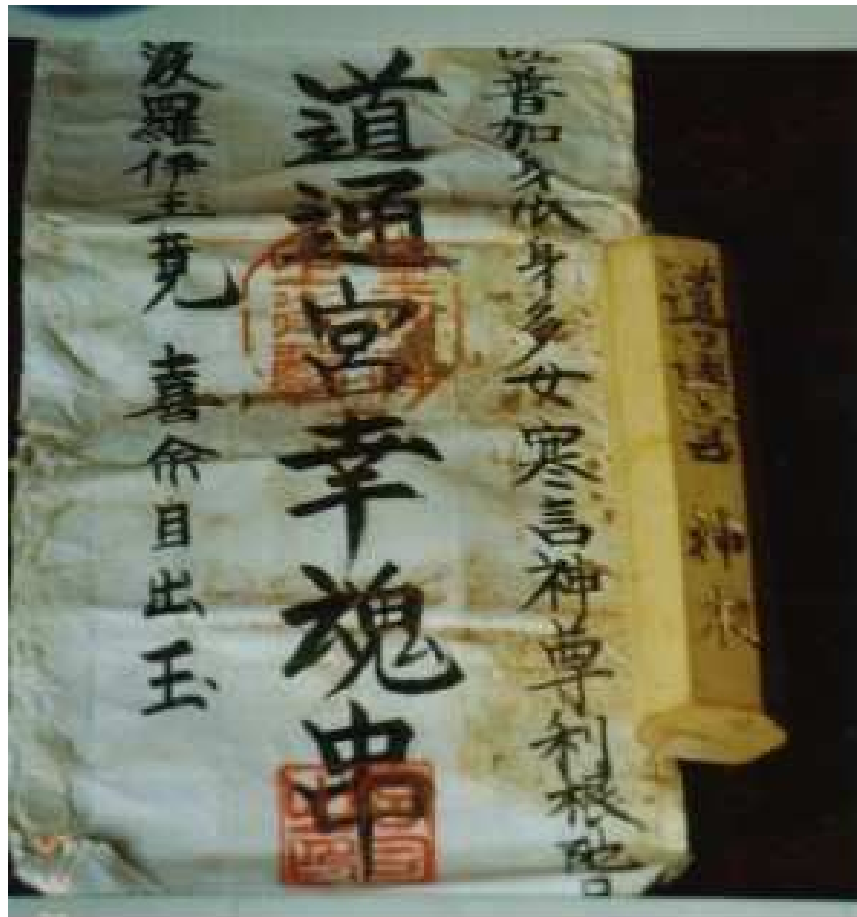 神
普加身依身多女寒言神尊利根陀
道通宮幸魂串
波羅伊玉意 喜余目出玉